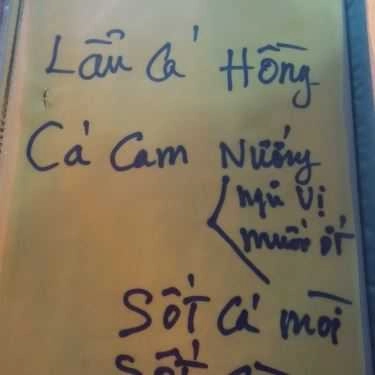 Lẩu Cá Hồng
Cá Cam Nướng
ngũ vị
muối ớt
SỐT Cá mòi
SỐT